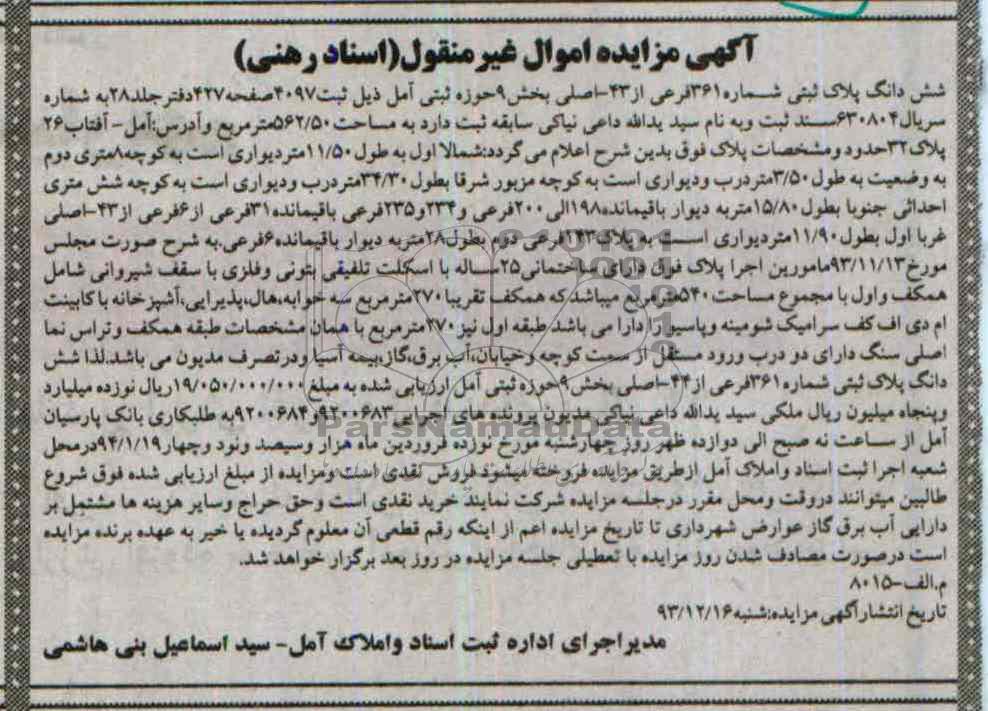 آگهی مزایده اموال غیرمنقول(اسناد رهنی)
شش دانگ پلاک ثبتی شماره۳۶۱فرعی از۴۳-اصلی بخش۹حوزه ثبتی آمل ذیل ثبت۴۰۹۷صفحه۴۲۷دفترجلد۲۸به شماره
سریال۶۳۰۸۰۴سند ثبت وبه نام سید یدالله داعی نیاکی سابقه ثبت دارد به مساحت۵۶۲/۵۰مترمربع وآدرس:آمل- آفتاب۲۶
پلاک۳۲حدود ومشخصات پلاک فوق بدین شرح اعلام می گردد:شمالا اول به طول۱۱/۵۰متردیواری است به کوچه۸متری دوم
به وضعیت به طول۳/۵۰متردرب ودیواری است به کوچه مزبور شرقا بطول۳۴/۳۰متردرب ودیواری است به کوچه شش متری
احداثی جنوبا بطول۱۵/۸۰متربه دیوار باقیمانده۱۹۸الی۲۰۰فرعی و۲۳۴و۲۳۵فرعی باقیمانده۳۱فرعی از۶فرعی از۴۳-اصلی
غربا اول بطول۱۱/۹۰متردیواری است به پلاک۲۴۳فرعی دوم بطول۲۸متربه دیوار باقیمانده۶فرعی.به شرح صورت مجلس
مورخ۹۳/۱۱/۱۳مامورین اجرا پلاک فوق دارای ساختمانی۲۵ساله با اسکلت تلفیقی بتونی وفلزی با سقف شیروانی شامل
همکف واول با مجموع مساحت۵۴۰مترمربع میباشد که همکف تقریبا۲۷۰مترمربع سه خوابه،هال،پذیرایی،آشپزخانه با کابینت
ام دی اف کف سرامیک شومینه وپاسیو را دارا می باشد طبقه اول نیز۲۷۰مترمربع با همان مشخصات طبقه همکف وتراس نما
اصلی سنگ دارای دو درب ورود مستقل از سمت کوچه وخیابان،آب برق،گاز،بیمه آسیا ودرتصرف مدیون می باشد.لذا شش
دانگ پلاک ثبتی شماره۳۶۱فرعی از۴۴-اصلی بخش۹حوزه ثبتی آمل ارزیابی شده به مبلغ۱۹/۰۵۰/۰۰۰/۰۰۰ریال نوزده میلیارد
وپنجاه میلیون ریال ملکی سید یدالله داعی نیاکی مدیون پرونده های اجرایی۹۲۰۰۶۸۳و۹۲۰۰۶۸۴به طلبکاری بانک پارسیان
آمل از ساعت نه صبح الی دوازده ظهر روز چهارشنبه مورخ نوزده فروردین ماه هزار وسیصد ونود وچهار۹۴/۱/۱۹درمحل
شعبه اجرا ثبت اسناد واملاک آمل ازطریق مزایده فروخته میشود فروش نقدی است ومزایده از مبلغ ارزیابی شده فوق شروع
طالبین میتوانند دروقت ومحل مقرر درجلسه مزایده شرکت نمایند خرید نقدی است وحق حراج وسایر هزینه ها مشتمل بر
دارایی آب برق گاز عوارض شهرداری تا تاریخ مزایده اعم از اینکه رقم قطعی آن معلوم گردیده یا خیر به عهده برنده مزایده
است درصورت مصادف شدن روز مزایده با تعطیلی جلسه مزایده در روز بعد برگزار خواهد شد.
م.الف-۸۰۱۵
تاریخ انتشارآگهی مزایده:شنبه۹۳/۱۲/۱۶
مدیراجرای اداره ثبت اسناد واملاک آمل- سید اسماعیل بنی هاشمی
ParsNamadData